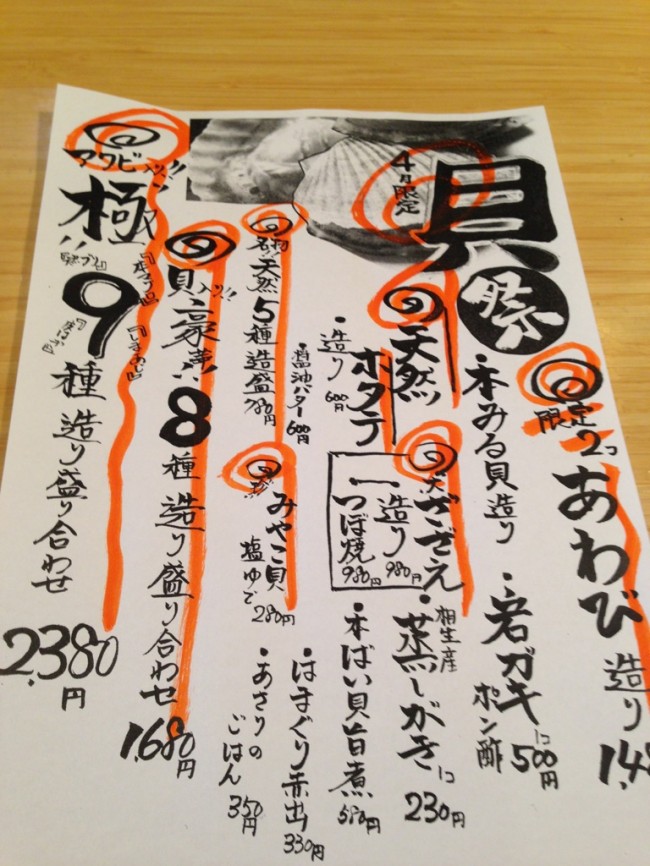 4月限定
貝祭
限定2コ
あわび造り
・本みる貝造り
・岩ガキ
ポン酢
1コ500円
天然
ホタテ
・造り600円
・醤油バター600円
大さざえ
造り980円
つぼ焼980円
相生産
・蒸しがき
1コ230円
・本ばい貝旨煮580円
名物
天然5種造盛780円
みやこ貝
塩ゆで280円
・はまぐり赤出330円
・あさりのごはん350円
貝入り!!
豪華!!
8種造り盛り合わせ
1,680円
アワビ入り!!
極
9種造り盛り合わせ
2,380円